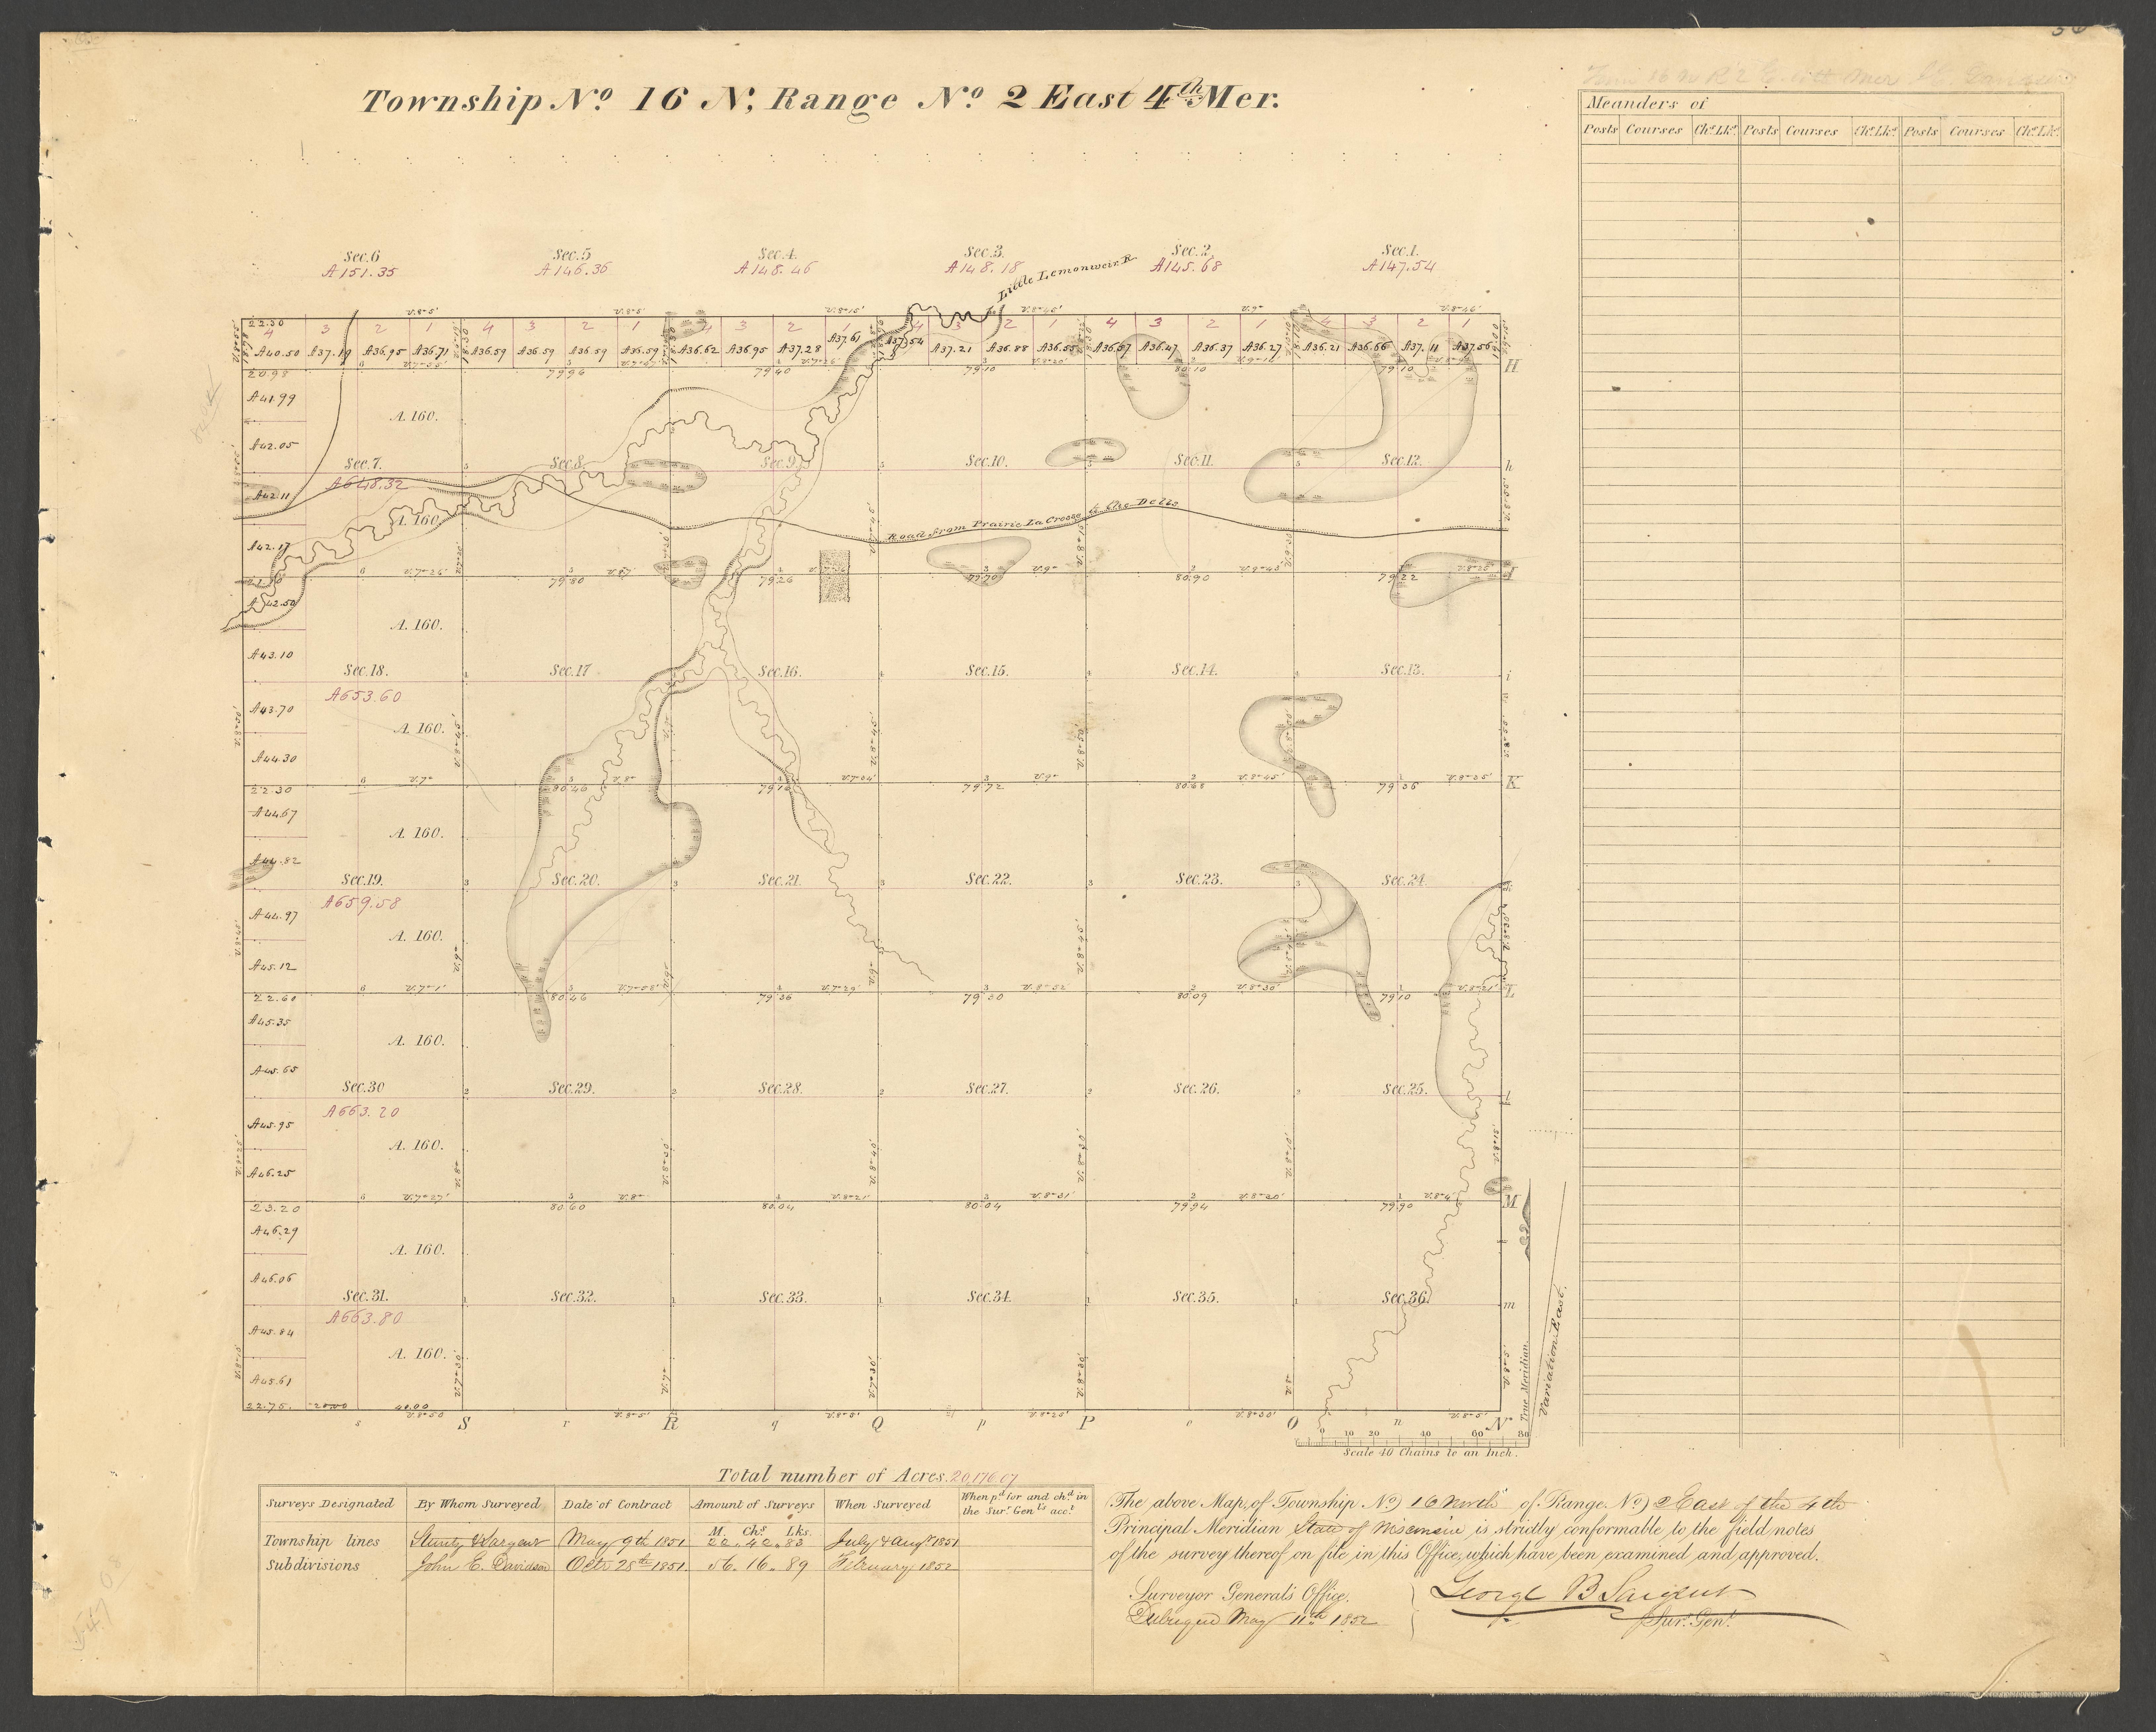 Township No. 16 N, Range No. 2 East 4th Mer.
Meanders of
Posts Courses Chs. Lks. Posts Courses Chs. Lks. Posts Courses Chs. Lks.
Sec. 6 Sec. 5 Sec. 4. Sec. 3. Sec. 2. Sec. 1.
A151.35 A146.36 A148.46 A148.18 A145.68 A147.54
Little Lemonweir R.
22.30
4 3 2 1 4 3 2 1 4 3 2 1 4 3 2 1 4 3 2 1 4 3 2 1
A40.50 A37.19 A36.95 A36.71 A36.59 A36.59 A36.59 A36.59 A36.62 A36.95 A37.28 A37.61 A37.54 A37.21 A36.88 A36.55 A36.57 A36.47 A36.37 A36.27 A36.21 A36.66 A37.11 A37.56
H
20.98 79.96 79.40 79.10 80.10 79.10
A41.99
A. 160.
A42.05
Sec. 7. Sec. 8. Sec. 9. Sec. 10. Sec. 11. Sec. 12. h
A648.32
A42.11
Road from Prairie La Crosse to the Dells
A. 160
A42.17
I
79.80 79.26 77.70 80.90 79.22
A42.50
A. 160.
A43.10
Sec. 18. Sec. 17 Sec. 16. Sec. 15. Sec. 14. Sec. 13. i
A653.60
A43.70
A. 160.
A44.30
K
22.30 80.40 79.16 79.72 80.68 79.36
A44.67
A. 160.
A44.82
Sec. 19. Sec. 20. Sec. 21. Sec. 22. Sec. 23. Sec. 24.
A659.58
A44.97
A. 160.
A45.12
L
22.60 80.46 79.36 79.30 80.09 79.10
A45.35
A. 160.
A45.65
Sec. 30 Sec. 29. Sec. 28. Sec. 27. Sec. 26. Sec. 25. l
A663.20
A45.95
A. 160.
A46.25
M
23.20 80.60 80.04 80.04 79.94 79.90
A46.29
A. 160.
A46.06
Sec. 31. Sec. 32. Sec. 33. Sec. 34. Sec. 35. Sec. 36. m
A663.80
A45.84
A. 160.
A45.61
22.75. 20.00 40.00
s S r R q Q p P o O n N
True Meridian.
Variation East.
0 10 20 40 60 80
Scale 40 Chains to an Inch.
Total number of Acres. 20,176.07
Surveys Designated By Whom Surveyed Date of Contract Amount of Surveys When Surveyed When pd. for and chd. in the Sur. Genl's acct.
M. Chs. Lks.
Township lines Sturdy & Sargent May 9th 1851 22.42.83 July & Augt 1851
Subdivisions John E. Davidson Octr 28th 1851. 56.16.89 February 1852
The above Map of Township No. 16 North of Range No. 2 East of the 4th
Principal Meridian State of Wisconsin is strictly conformable to the field notes
of the survey thereof on file in this Office, which have been examined and approved.
Surveyor General's Office,
Dubuque May 11th 1852
George B Sargent
Sur. Genl.